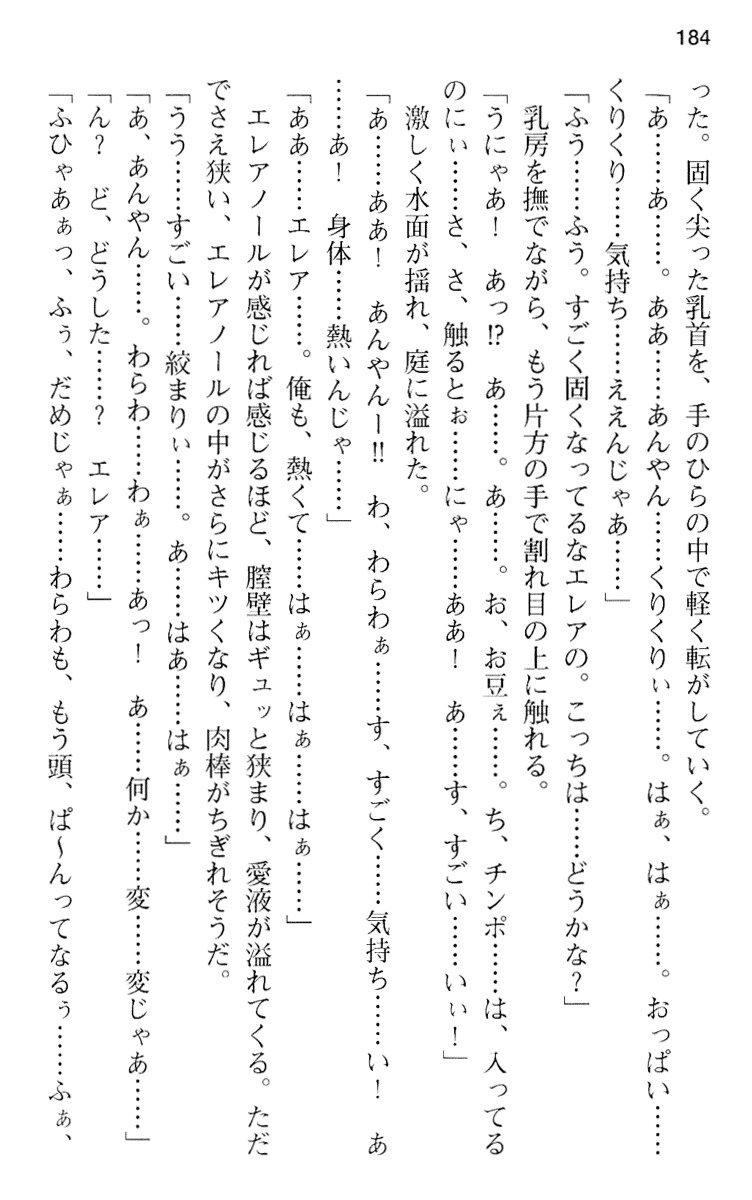 184
った。固く尖った乳首を、手のひらの中で軽く転がしていく。
「あ……あ……。ああ……あんやん……くりくりぃ……。はぁ、はぁ……。おっぱい……
くりくり……気持ち……ええんじゃあ……」
「ふう……ふう。すごく固くなってるなエレアの。こっちは……どうかな？」
乳房を撫でながら、もう片方の手で割れ目の上に触れる。
「うにゃあ！　あっ!?　あ……。あ……。お、お豆ぇ……。ち、チンポ……は、入ってる
のにぃ……さ、さ、触るとぉ……にゃ……ああ！　あ……す、すごい……いぃ！」
激しく水面が揺れ、庭に溢れた。
「あ……ああ！　あんやんー!!　わ、わらわぁ……す、すごく……気持ち……い！　あ
……あ！　身体……熱いんじゃ……」
「ああ……エレア……。俺も、熱くて……はぁ……はぁ……はぁ……」
エレアノールが感じれば感じるほど、膣壁はギュッと狭まり、愛液が溢れてくる。ただ
でさえ狭い、エレアノールの中がさらにキツくなり、肉棒がちぎれそうだ。
「うう……すごい……絞まりぃ……。あ……はあ……はぁ……」
「あ、あんやん……。わらわ……わぁ……あっ！　あ……何か……変……変じゃあ……」
「ん？　ど、どうした……？　エレア……」
「ふひゃあぁっ、ふぅ、だめじゃぁ……わらわも、もう頭、ぱ～んってなるぅ……ふぁ、